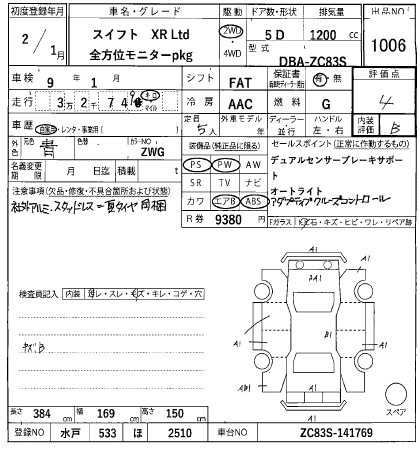 初度登録年月 車名・グレード 駆動 ドア数・形状 排気量 出品NO
2/1月 スイフト XR Ltd 2WD ・4WD 5D 1200 cc 1006
全方位モニターpkg 型式 DBA-ZC83S
車検 9年1月 シフト FAT 保証書 有・無 評価点
走行 3万2千74 キロ マイル 冷房 AAC 燃料 G 4
車歴 自家用・レンタ・事業用( ) 定員 5人 外車モデル 年 ディーラー・並行 ハンドル 左・右 内装評価 B
外装色 元色 青 色替 カラーNO ZWG 装備品(純正品に限る) セールスポイント(正常に作動するもの)
名義変更期限 月 日迄 積載 t PS PW AW デュアルセンサーブレーキサポート
注意事項(欠品・修復・不具合箇所および状態) SR TV ナビ オートライト
社外アルミ.スタッドレス=夏タイヤ同梱 カワ エアB ABS アダプティブクルーズコントロール
R券 9380 円 Fガラス 石・キズ・ヒビ・ワレ・リペア跡
A1
A1 2A1 A1
検査員記入 内装 スレ・キズ・キレ・コゲ・穴
B1
キズB
A1 AB1 A1
A1
スペア
長さ 384 cm 幅 169 cm 高さ 150 cm
登録NO 水戸 533 ほ 2510 車台NO ZC83S-141769